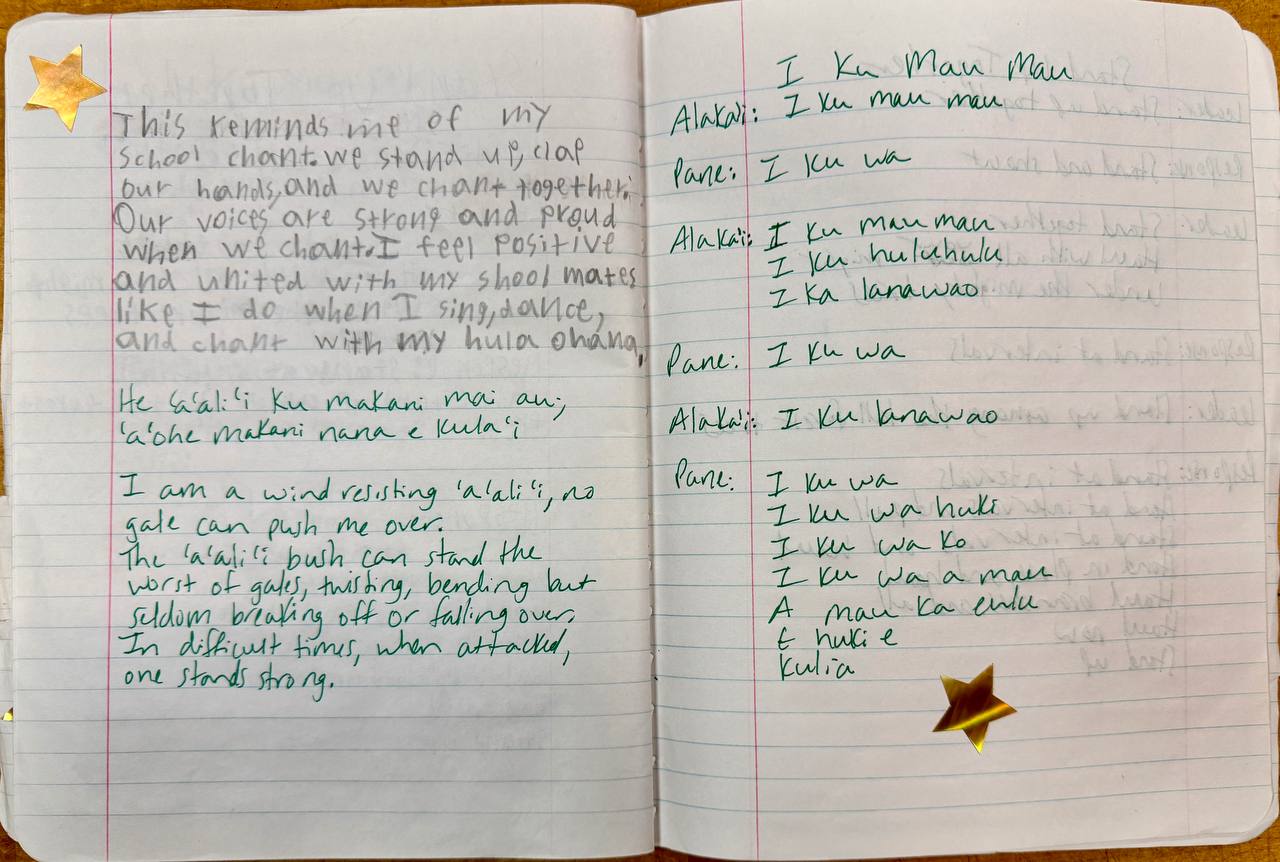 This reminds me of my
school chant. we stand up, clap
our hands, and we chant together.
Our voices are strong and proud
when we chant. I feel positive
and united with my shool mates
like I do when I sing, dance,
and chant with my hula ohana.
He ʻaʻaliʻi Ku makani mai au;
ʻaʻohe makani nana e kulaʻi
I am a wind resisting ʻaʻaliʻi, no
gale can push me over.
The ʻaʻaliʻi bush can stand the
worst of gales, twisting, bending but
seldom breaking off or falling over.
In difficult times, when attacked,
one stands strong.
I Ku Mau Mau
Alakaʻi: I Ku mau mau
Pane: I Ku wa
Alakaʻi: I Ku mau mau
I Ku huluhulu
I Ka lanawao
Pane: I Ku wa
Alakaʻi: I Ku lanawao
Pane: I Ku wa
I Ku wa huki
I Ku wa Ko
I Ku wa a mau
A mau Ka eulu
E huki e
Kulia